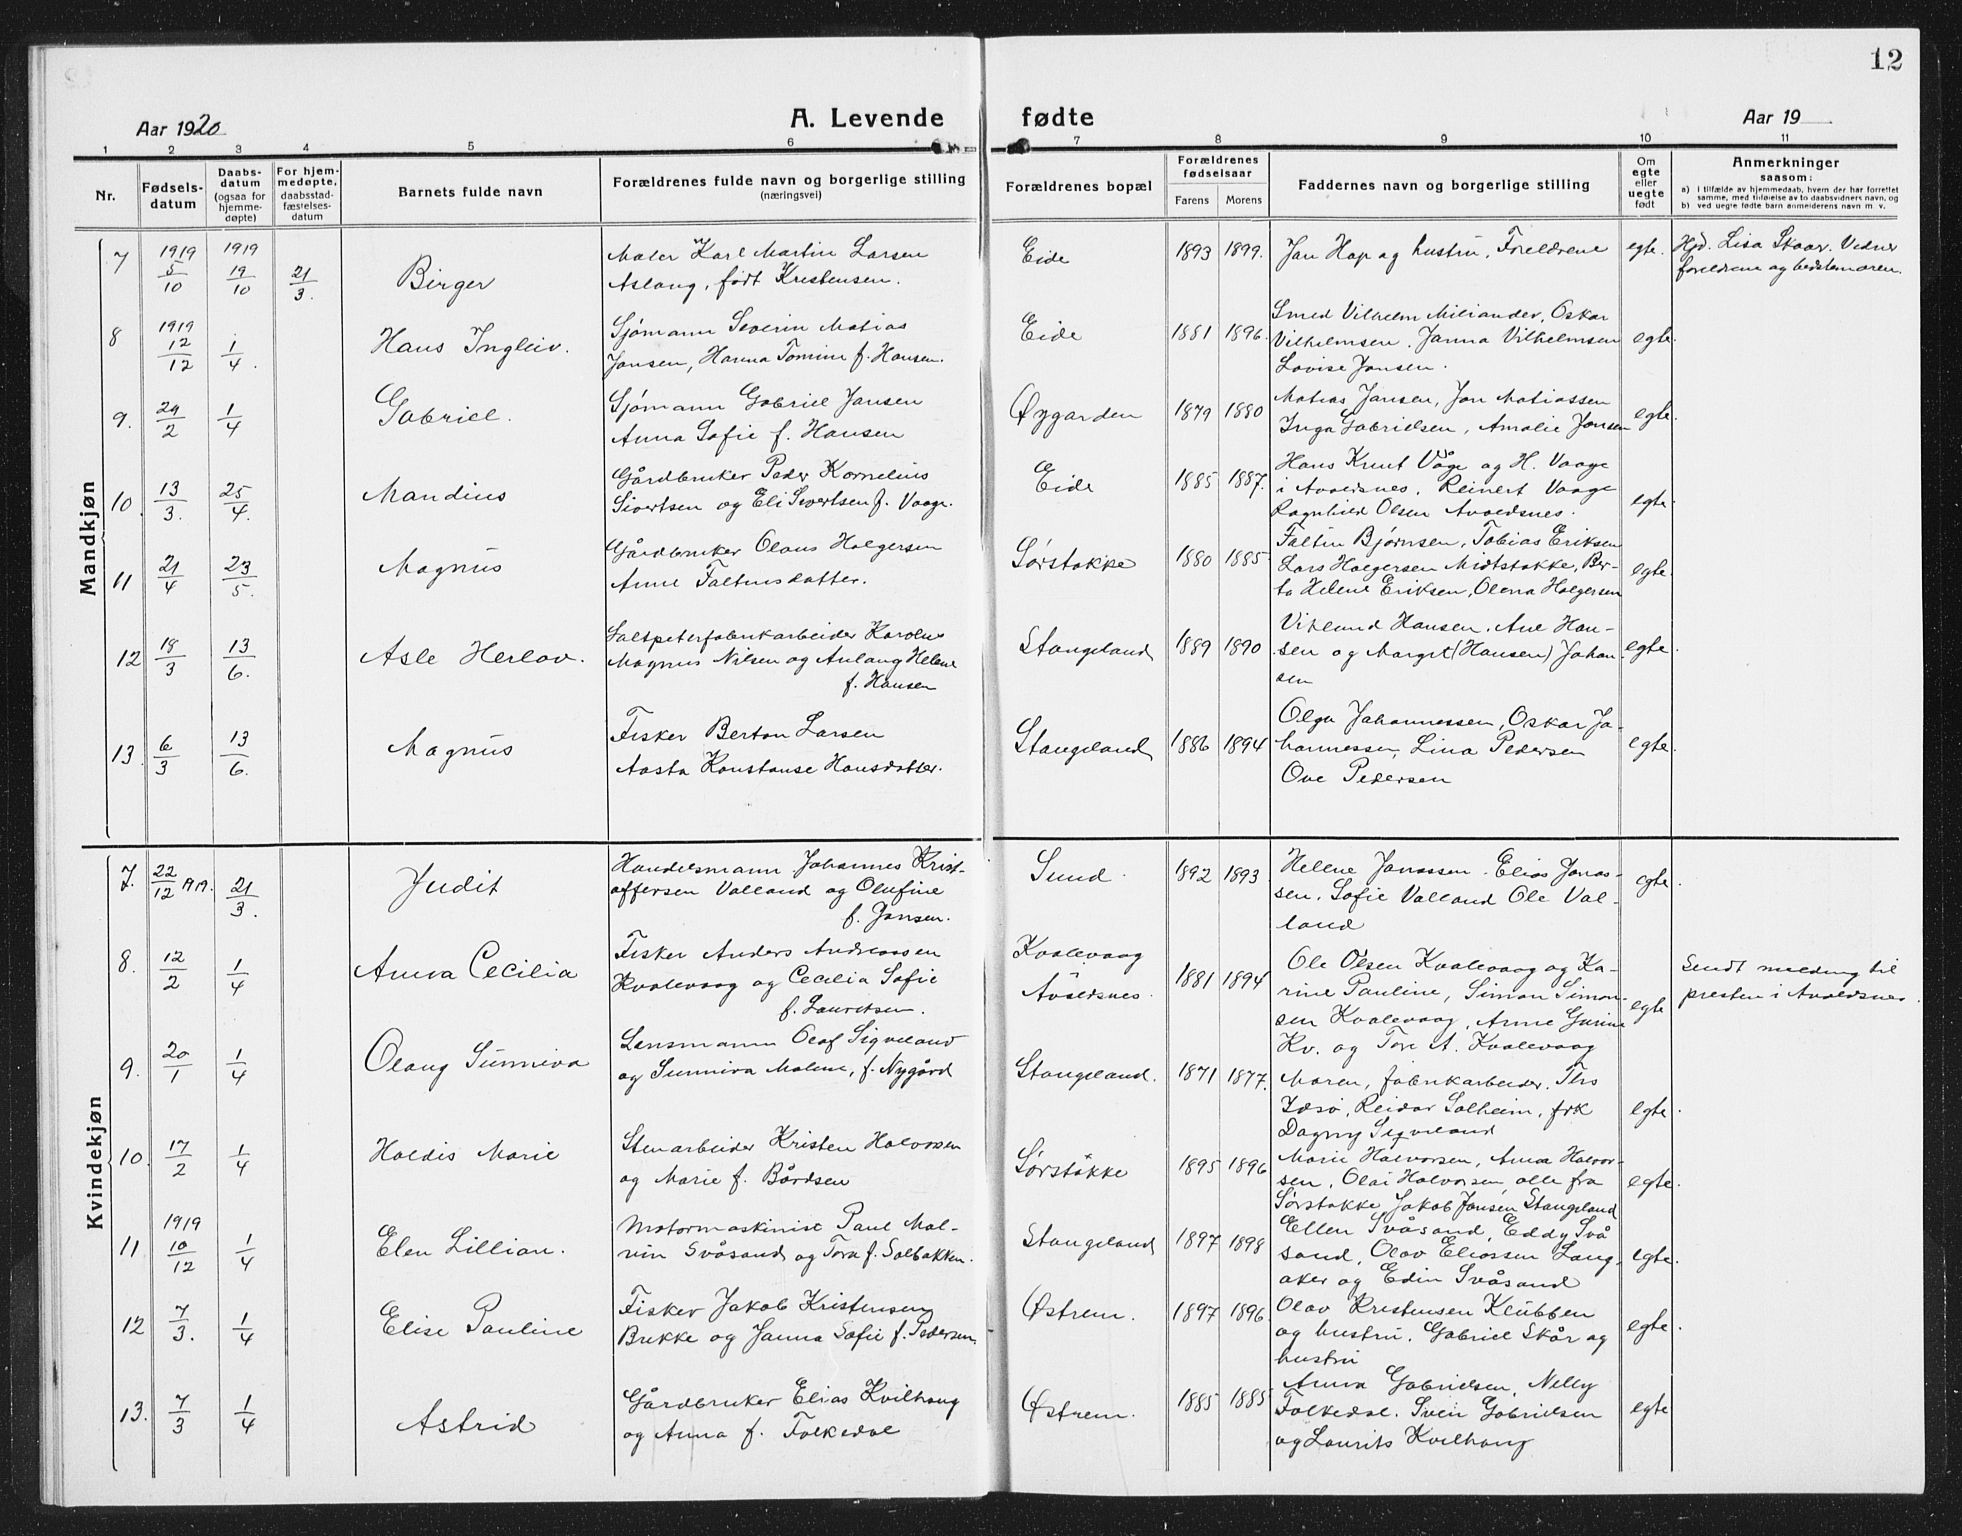 12
Aar 1920 A. Levende fødte Aar 19
1 2 3 4 5 6 7 8 9 10 11
Nr. Fødselsdatum Daabsdatum (ogsaa for hjemmedøpte) For hjemmedøpte, daabsstadfæstelsesdatum Barnets fulde navn Forældrenes fulde navn og borgerlige stilling (næringsvei) Forældrenes bopæl Forældrenes fødselsaar Farens Morens Faddernes navn og borgerlige stilling Om egte eller uegte født Anmerkninger saasom:
a) i tilfælde av hjemmedaab, hvem der har forrettet samme, med tilføielse av to daabsvidners navn, og
b) ved uegte fødte barn anmelderens navn m. v.
Mandkjøn
7 1919 5/10 1919 19/10 21/3. Birger
Maler Karl Martin Larsen
Aslaug, født Kristensen.
Eide 1893 1899. Jan Hop og hustru, Forældrene egte.
Hjd. Lisa Skaar. Vidner
forældrene og bedstemoren.
8 1919 12/12 1/4. Hans Ingleiv.
Sjømann Severin Matias
Jansen, Hanna Tomine f. Hansen.
Eide 1881 1896.
Smed Vilhelm Miliander, Oskar
Vilhelmsen. Janna Vilhelmsen
Lovise Jansen.
egte.
9. 29/2 1/4 Gabriel.
Sjømann Gabriel Jansen
Anna Sofie f. Hansen
Øygarden 1879 1880
Matias Jansen, Jon Matiassen
Inga Gabrielsen, Amalie Jansen
egte.
10. 13/3. 25/4. Mandius
Gårdbruker Peder Kornelius
Sivertsen og Eli Sivertsen f. Vaage.
Eide 1885 1887.
Hans Knut Våge og H. Vaage
i Avaldsnes. Reinert Vaage
Ragnhild Olsen Avaldsnes.
egte.
11 21/4 23/5. Magnus
Gårdbruker Olaus Holgersen
Anne Faltinsdatter.
Sørstokke 1880 1885.
Faltin Bjørnsen, Tobias Eriksen
Lars Holgersen Midtstokke, Ber-
ta Helene Eriksen, Olena Holgersen
egte.
12 18/3 13/6. Asle Herlov.
Saltpeterfabrikarbeider Karolus
Magnus Nilsen og Anlaug Helene
f. Hansen
Stangeland 1889 1890
Vikland Hansen. Ane Han-
sen og Margit (Hansen) Johan-
sen
egte.
13. 6/3 13/6. Magnus
Fisker Berton Larsen
Aasta Konstanse Hansdatter.
Stangeland 1886 1894
Olga Johannessen, Oskar Jo-
hannessen, Lina Pedersen
Ove Pedersen
egte.
Kvindekjøn
7. 22/12 1919. 21/3. Judit
Handelsmann Johannes Krist-
offersen Valland og Olufine
f. Jansen.
Sund. 1892 1893.
Helene Jonassen. Elias Jonas-
sen. Sofie Valland Ole Val-
land
egte.
8. 12/2 1/4 Anna Cecilia
Fisker Anders Andreassen
Kvalevaag og Cecilia Sofie
f. Lauritsen.
Kvalevaag
Avaldsnes. 1881 1894
Ole Olsen Kvalevaag og Ka-
rine Pauline, Simon Simon-
sen Kvalevaag, Anne Gurine
Kv. og Tore A. Kvalevaag
egte
Sendt melding til
presten i Avaldsnes
9. 20/1 1/4 Olaug Sunniva
Lensmann Olaf Sigveland
og Sunniva Malene, f. Nygård
Stangeland. 1871 1877.
Moren, fabrikarbeider. Ths
Idsø, Reidar Solheim, frk
Dagny Sigveland
egte.
10. 17/2 1/4 Haldis Marie
Stenarbeider Kristen Halvorsen
og Marie f. Bårdsen
Sørstokke 1895 1896
Marie Halvorsen, Anna Halvor-
sen, Olai Halvorsen, alle fra
Sørstokke, Jakob Jansen Stangeland
egte.
11 1919 10/12 1/4 Elen Lillian.
Motormaskinist Paul Mal-
vin Svåsand og Tora f. Solbakken.
Stangeland 1897 1898
Ellen Svåsand, Eddy Svå
sand, Olav Eliassen Lang-
aker og Edin Svåsand
egte.
12 7/3. 1/4 Elise Pauline
Fisker Jakob Kristensen
Brekke og Janna Sofie f. Pedersen.
Østrem. 1897 1896.
Olav Kristensen Klubben
og hustru. Gabriel Skår og
hustru
egte.
13. 7/3 1/4 Astrid
Gårdbruker Elias Kvilhaug
og Anna f. Folkedal
Østrem. 1885 1885
Anna Gabrielsen, Nelly
Folkedal. Svein Gabrielsen
og Laurits Kvilhaug
egte